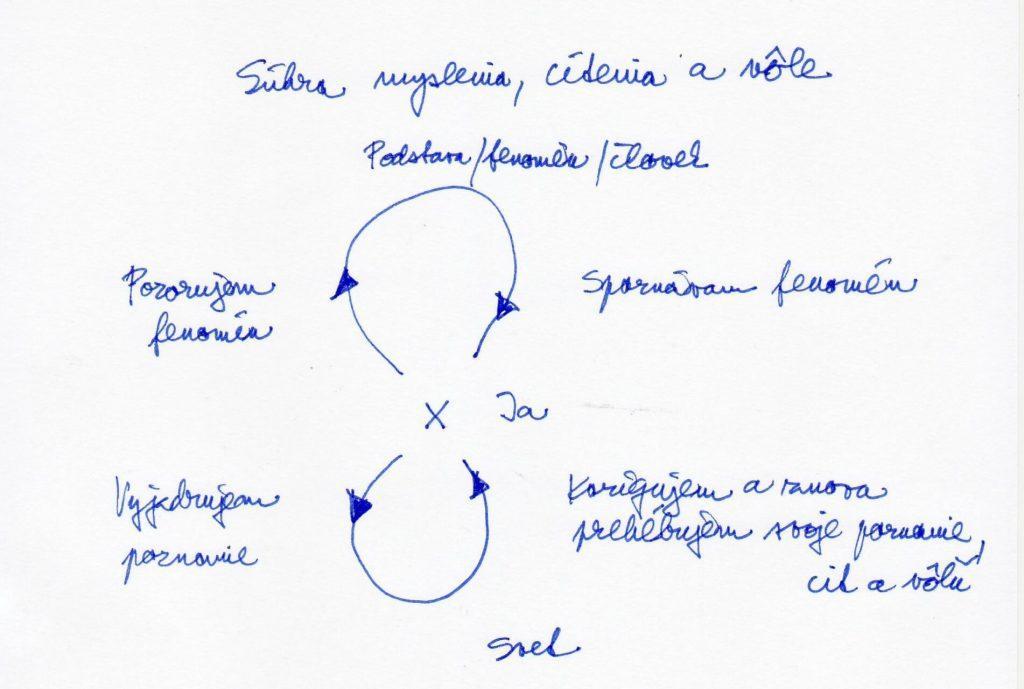 Súhra myslenia, cítenia a vôle
Podstava/fenomén/človek
Pozorujem
fenomén
Spoznávam fenomén
X Ja
Vyjadrujem
poznanie
Korigujem a znova
prehlbujem svoje poznanie,
cit a vôľu
svet